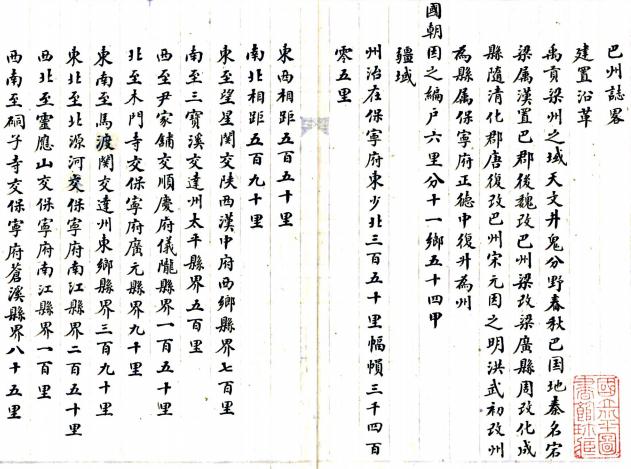 巴州誌畧
建置沿革
禹貢梁州之域天文井鬼分野春秋巴国地秦名宕
梁属漢置巴郡後魏改巴州梁改梁廣縣周改化成
縣隨清化郡唐復改巴州宋元因之明洪武初改州
為縣属保寧府正德中復升為州
國朝因之編户六里分十一鄉五十四甲
疆域
州治在保寧府東少北三百五十里幅幀三千四百
零五里
東西相距五百五十里
南北相距五百九十里
東至望星関交陝西漢中府西鄉縣界七百里
南至三寶溪交達州太平縣界五百里
西至尹家舖交順慶府儀隴縣界一百五十里
北至木門寺交保寧府廣元縣界九十里
東南至馬渡関交達州東鄉縣界三百九十里
東北至北源河交保寧府南江縣界二百五十里
西北至靈應山交保寧府南江縣界一百里
西南至硐子寺交保寧府蒼溪縣界八十五里